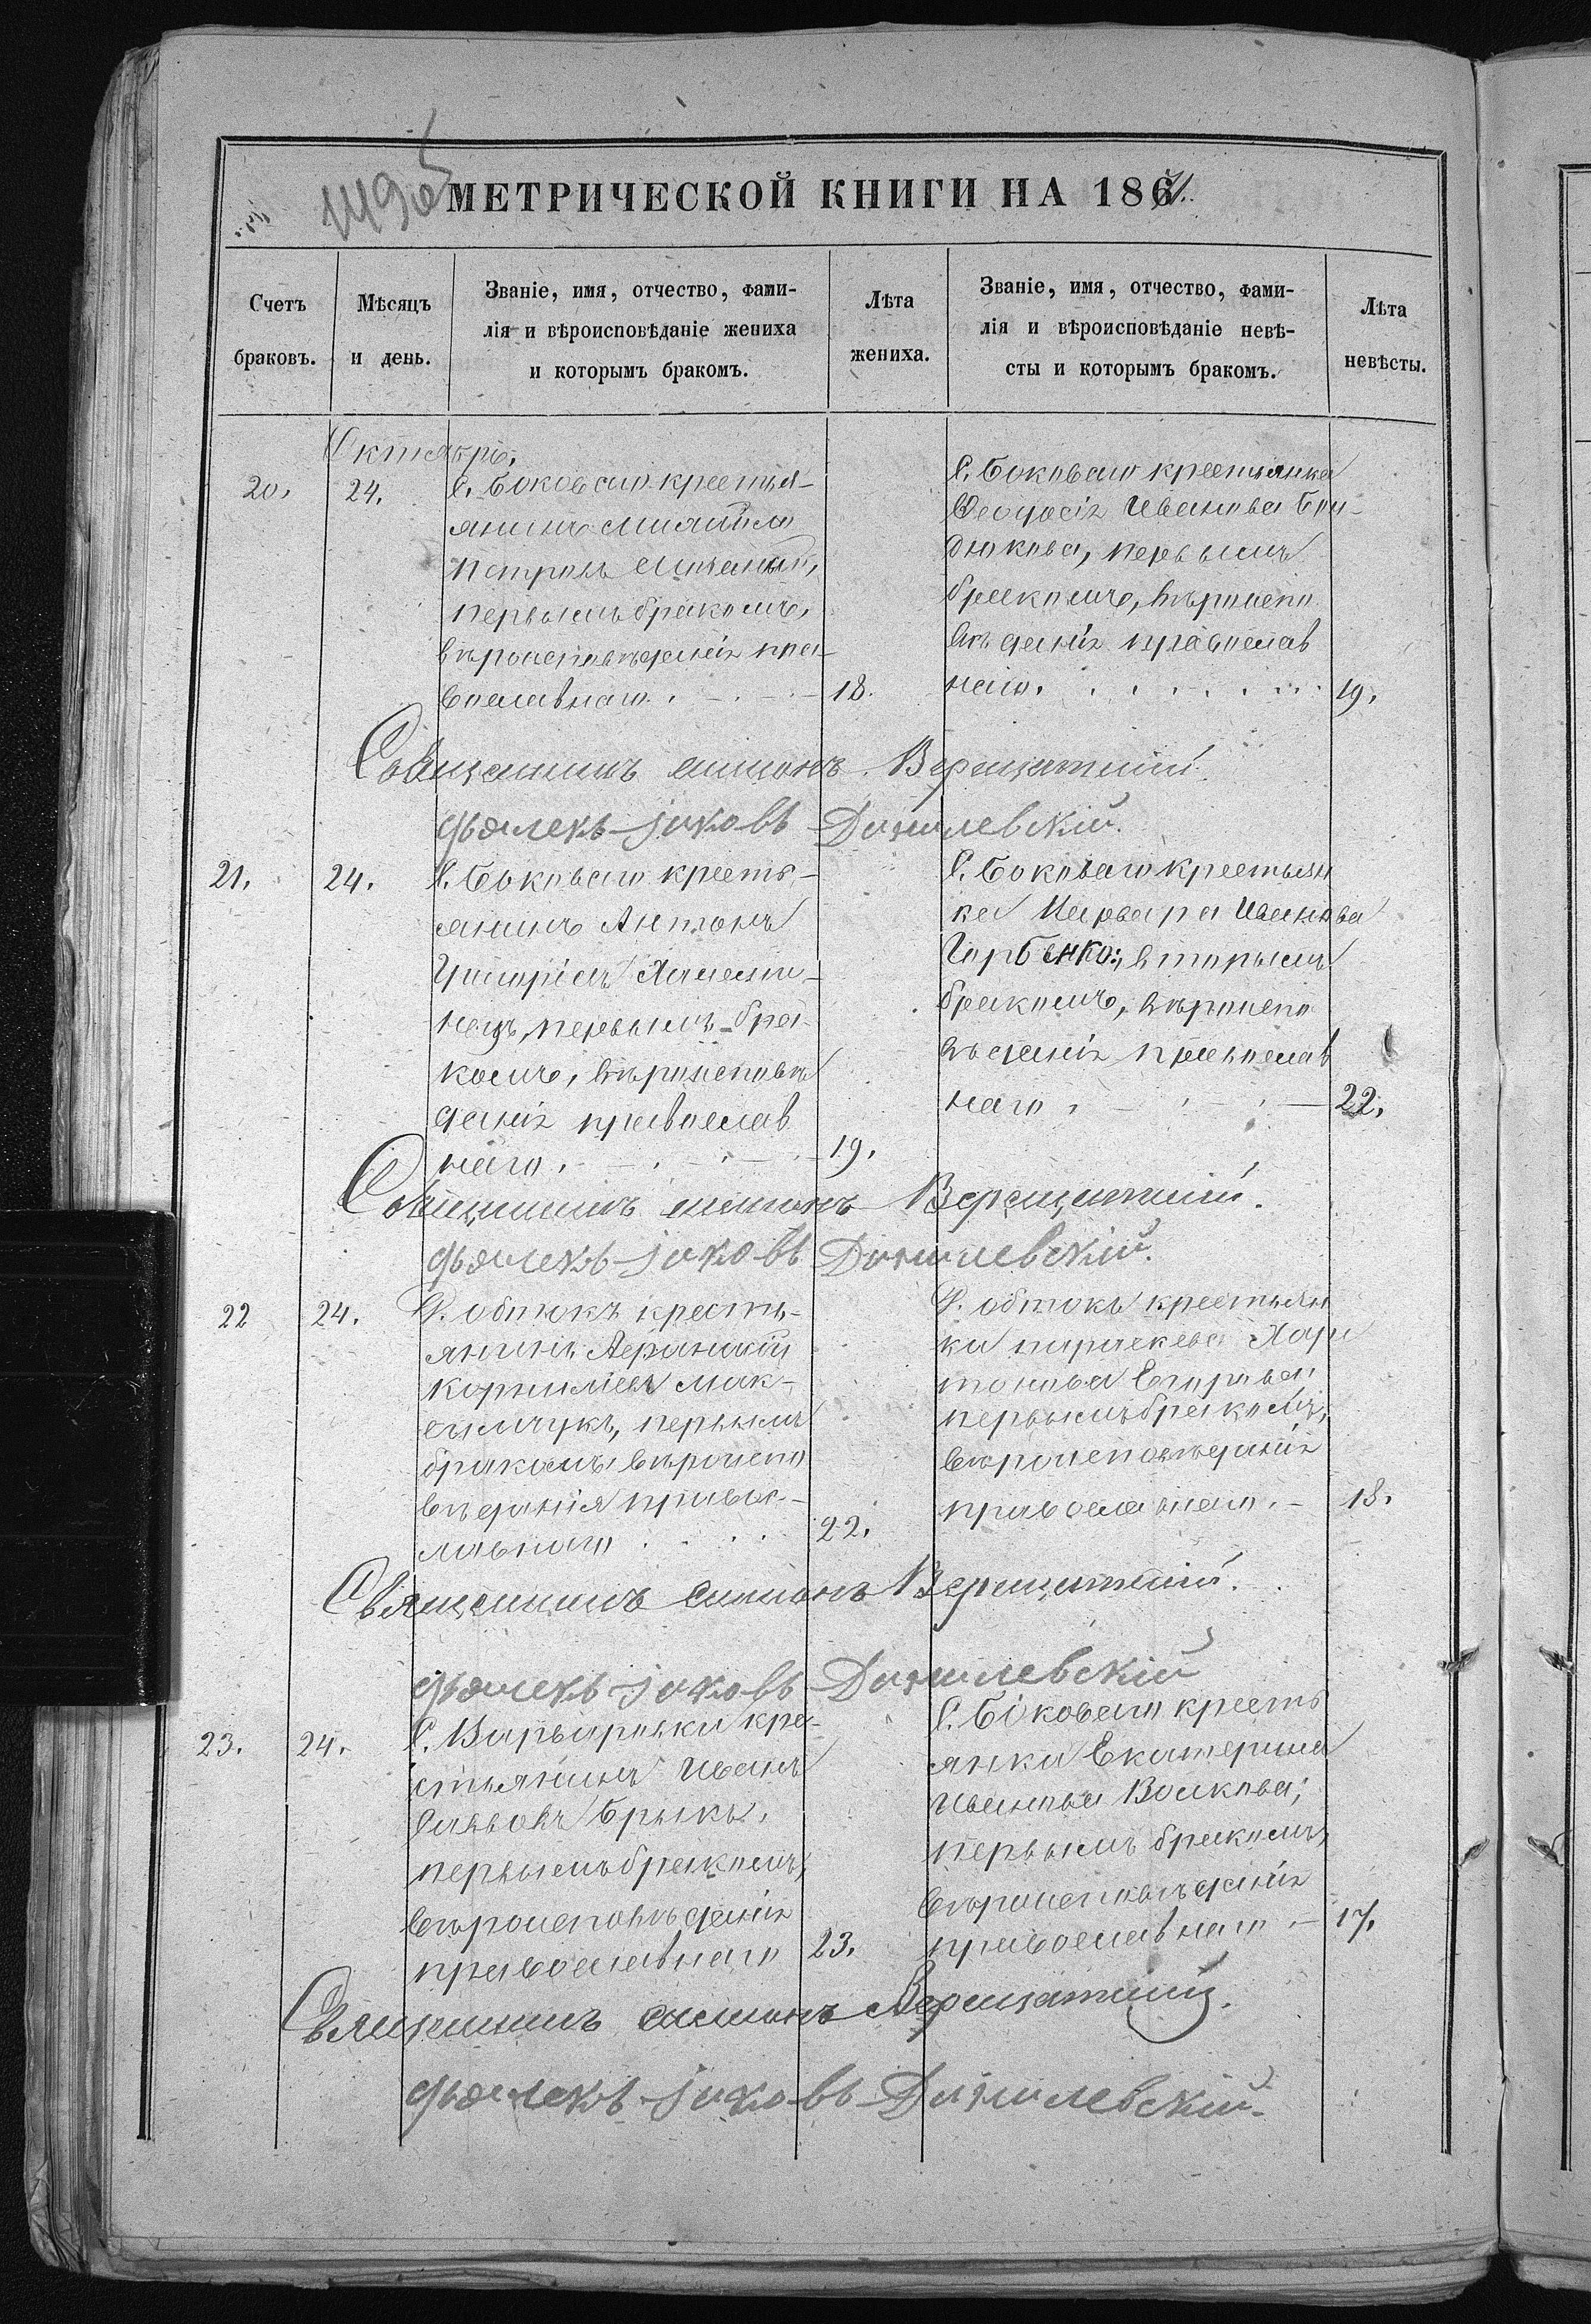 149об
МЕТРИЧЕСКОЙ КНИГИ НА 1861.
Счетъ
браковъ.
Мѣсяцъ
и день.
Званіе, имя, отчество, фами-
лія и вѣроисповѣданіе жениха
и которымъ бракомъ.
Лѣта
жениха.
Званіе, имя, отчество, фами-
лія и вѣроисповѣданіе невѣ-
сты и которымъ бракомъ.
Лѣта
невѣсты.
Октябрь.
20.
24.
С. Боковаго крестья-
янинъ Михаилъ
Петровъ
первымъ бракомъ,
вѣроисповѣданія пра-
вославнаго.
18.
С. Боковаго крестьянка
Феодосія Иванова
дюкова, первымъ
бракомъ, вѣроиспо
вѣданія православ
наго.
19.
Священникъ Симонъ Верещатскій
дьячекъ Іаковъ Данилевскій.
21.
24.
С. Боковаго кресть-
янинъ Антонъ
Григоріевъ
нецъ, первымъ бра-
комъ, вѣроисповѣ
данія православ
наго.
19.
С. Боковаго крестьян
ка Варвара Иванова
Горбенко, вторымъ
бракомъ, вѣроиспо
вѣданія православ
наго
22.
Священникъ Симонъ Верещатскій.
дьячекъ Іаковъ Данилевскій.
22
24.
Д. Обтокъ кресть-
янинъ Афанасій
Корниліевъ Мак-
симчукъ, первымъ
бракомъ, вѣроиспо
вѣданія правос-
лавнаго
22.
Д. Обтокъ крестьян
ка Параскева Хари
тонова Егорова
первымъ бракомъ,
вѣроисповѣданія
православнаго.
18.
Священникъ Симонъ Верещатскій.
дьячекъ Іаковъ Данилевскій
23.
24.
С. Варваровки кре-
стьянинъ Иванъ
Саввовъ Брыкъ,
первымъ бракомъ,
вѣроисповѣданія
православнаго
23.
С. Боковаго кресть
янка Екатерина
Иванова Волкова;
первымъ бракомъ,
вѣроисповѣданія
православнаго
17.
Священникъ Симонъ Верещатскій.
дьячекъ Іаковъ Данилевскій.